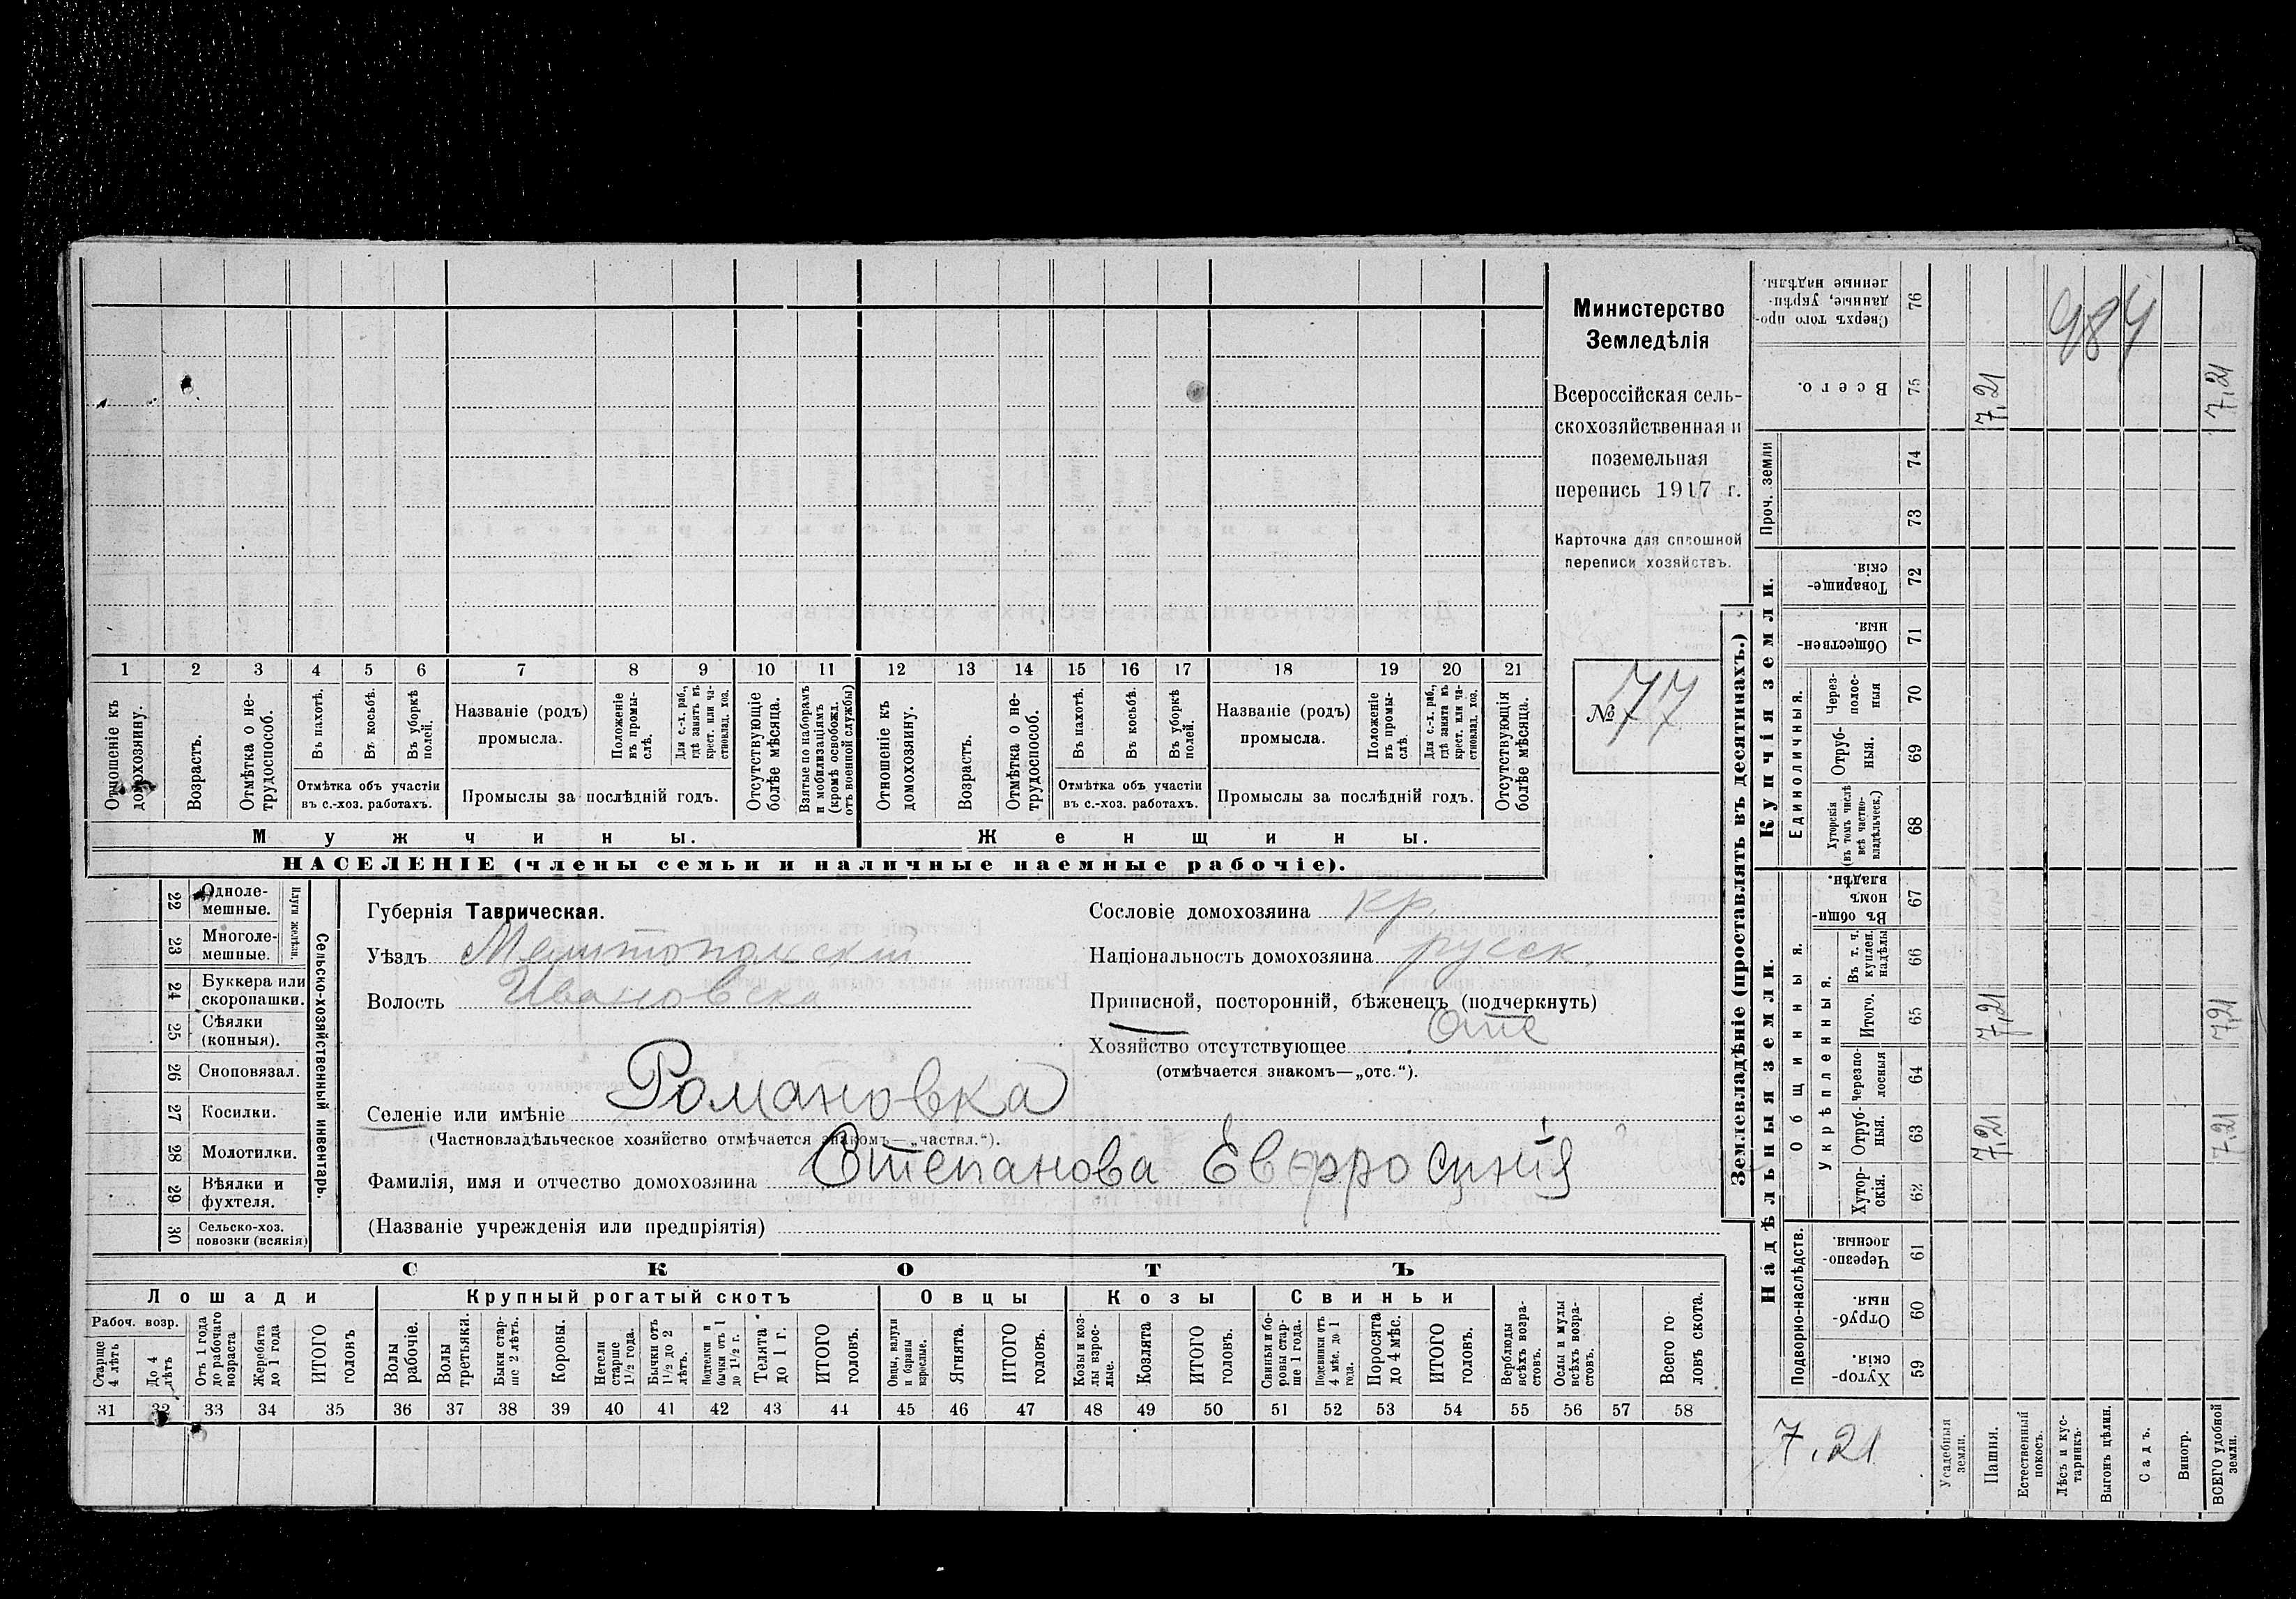 Министерство
Земледѣлія
Всероссійская сель-
скохозяйственная и
поземельная
перепись 1917 г.
Карточка для сплошной
переписи хозяйствъ.
№ 77
1 2 3 4 5 6 7 8 9 10 11 12 13 14 15 16 17 18 19 20 21
Отношеніе къ домохозяину.
Возрастъ.
Отмѣтка о не-трудоспособ.
Въ пахотѣ.
Въ косьбѣ.
Въ уборкѣ полей.
Отмѣтка объ участіи
въ с.-хоз. работахъ.
Названіе (родъ)
промысла.
Положеніе въ промы-слѣ.
Для с.-х. раб., гдѣ занятъ въ крест. или ча-стновлад. хоз.
Промыслы за послѣдній годъ.
Отсутствующіе болѣе мѣсяца.
Взятые по наборамъ и мобилизаціямъ (кромѣ освобожд. отъ военной службы)
Отношеніе къ домохозяину.
Возрастъ.
Отмѣтка о не-трудоспособ.
Въ пахотѣ.
Въ косьбѣ.
Въ уборкѣ полей.
Отмѣтка объ участіи
въ с.-хоз. работахъ.
Названіе (родъ)
промысла.
Положеніе въ промы-слѣ.
Для с.-х. раб., гдѣ занята въ крест. или ча-стновлад. хоз.
Промыслы за послѣдній годъ.
Отсутствующія болѣе мѣсяца.
Мужчины.
Женщины.
НАСЕЛЕНІЕ (члены семьи и наличные наемные рабочіе).
22 Одноле-мешные.
23 Многоле-мешные.
Плуги желѣзн.
24 Буккера или скоропашки.
25 Сѣялки (конныя).
26 Сноповязал.
27 Косилки.
28 Молотилки.
29 Вѣялки и фухтеля.
30 Сельско-хоз. повозки (всякія)
Сельско-хозяйственный инвентарь
Губернія Таврическая.
Уѣздъ Мелитопольскій
Волость Ивановска
Селеніе или имѣніе Романовка
(Частновладѣльческое хозяйство отмѣчается знакомъ—„частвл.“).
Фамилія, имя и отчество домохозяина Степанова Евфросинія
(Названіе учрежденія или предпріятія)
Сословіе домохозяина кр.
Національность домохозяина русск.
Приписной, посторонній, бѣженецъ (подчеркнуть)
Хозяйство отсутствующее Отс
(отмѣчается знакомъ—„отс.“).
СКОТЪ
Лошади
Крупный рогатый скотъ
Овцы
Козы
Свиньи
Рабоч. возр.
Старше 4 лѣтъ
До 4 лѣтъ
Отъ 1 года до рабочаго возраста
Жеребята до 1 года
ИТОГО головъ
Волы рабочіе.
Волы третьяки.
Быки стар-ше 2 лѣтъ.
Коровы.
Нетели старше 1 1/2 года.
Бычки отъ 1 1/2 до 2 лѣтъ.
Подтелки и бычки отъ 1 до 1 1/2 г.
Телята до 1 г.
ИТОГО головъ.
Овцы, валухи и бараны взрослые.
Ягнята.
ИТОГО головъ.
Козы и коз-лы взрос-лые.
Козлята
ИТОГО головъ.
Свиньи и бо-ровы стар-ше 1 года.
Подсвинки отъ 4 мѣс. до 1 года.
Поросята до 4 мѣс.
ИТОГО головъ.
Верблюды всѣхъ возра-стовъ.
Ослы и мулы всѣхъ возра-стовъ.
Всего го-ловъ скота.
31 32 33 34 35 36 37 38 39 40 41 42 43 44 45 46 47 48 49 50 51 52 53 54 55 56 57 58
Землевладѣніе (проставлять въ десятинахъ.)
Сверхъ того про-данные, укрѣп-ленные надѣлы. 76
984
Всего. 75 7,21 7,21
Проч. земли 74
73
Купчія земли.
Товарище-скія. 72
Обществен-ныя. 71
Единоличныя.
Через-полос-ныя 70
Отруб-ныя. 69
Хуторскія (въ томъ числѣ всѣ частно-владѣльческ.) 68
Надѣльныя земли.
Общинныя.
Въ общи-номъ владѣн. 67
Укрѣпленныя.
Въ т. ч. куплен. надѣлы 66
Итого. 65 7,21 7,21
Черезпо-лосныя 64
Отруб-ныя. 63 7,21 7,21
Хутор-скія. 62
Подворно-наслѣдств.
Черезпо-лосныя. 61
Отруб-ныя. 60
Хутор-скія. 59
7.21
Усадебныя земли.
Пашня.
Естественный покосъ.
Лѣсъ и кус-тарникъ.
Выгонъ цѣлин.
Садъ.
Виногр.
ВСЕГО удобной земли.